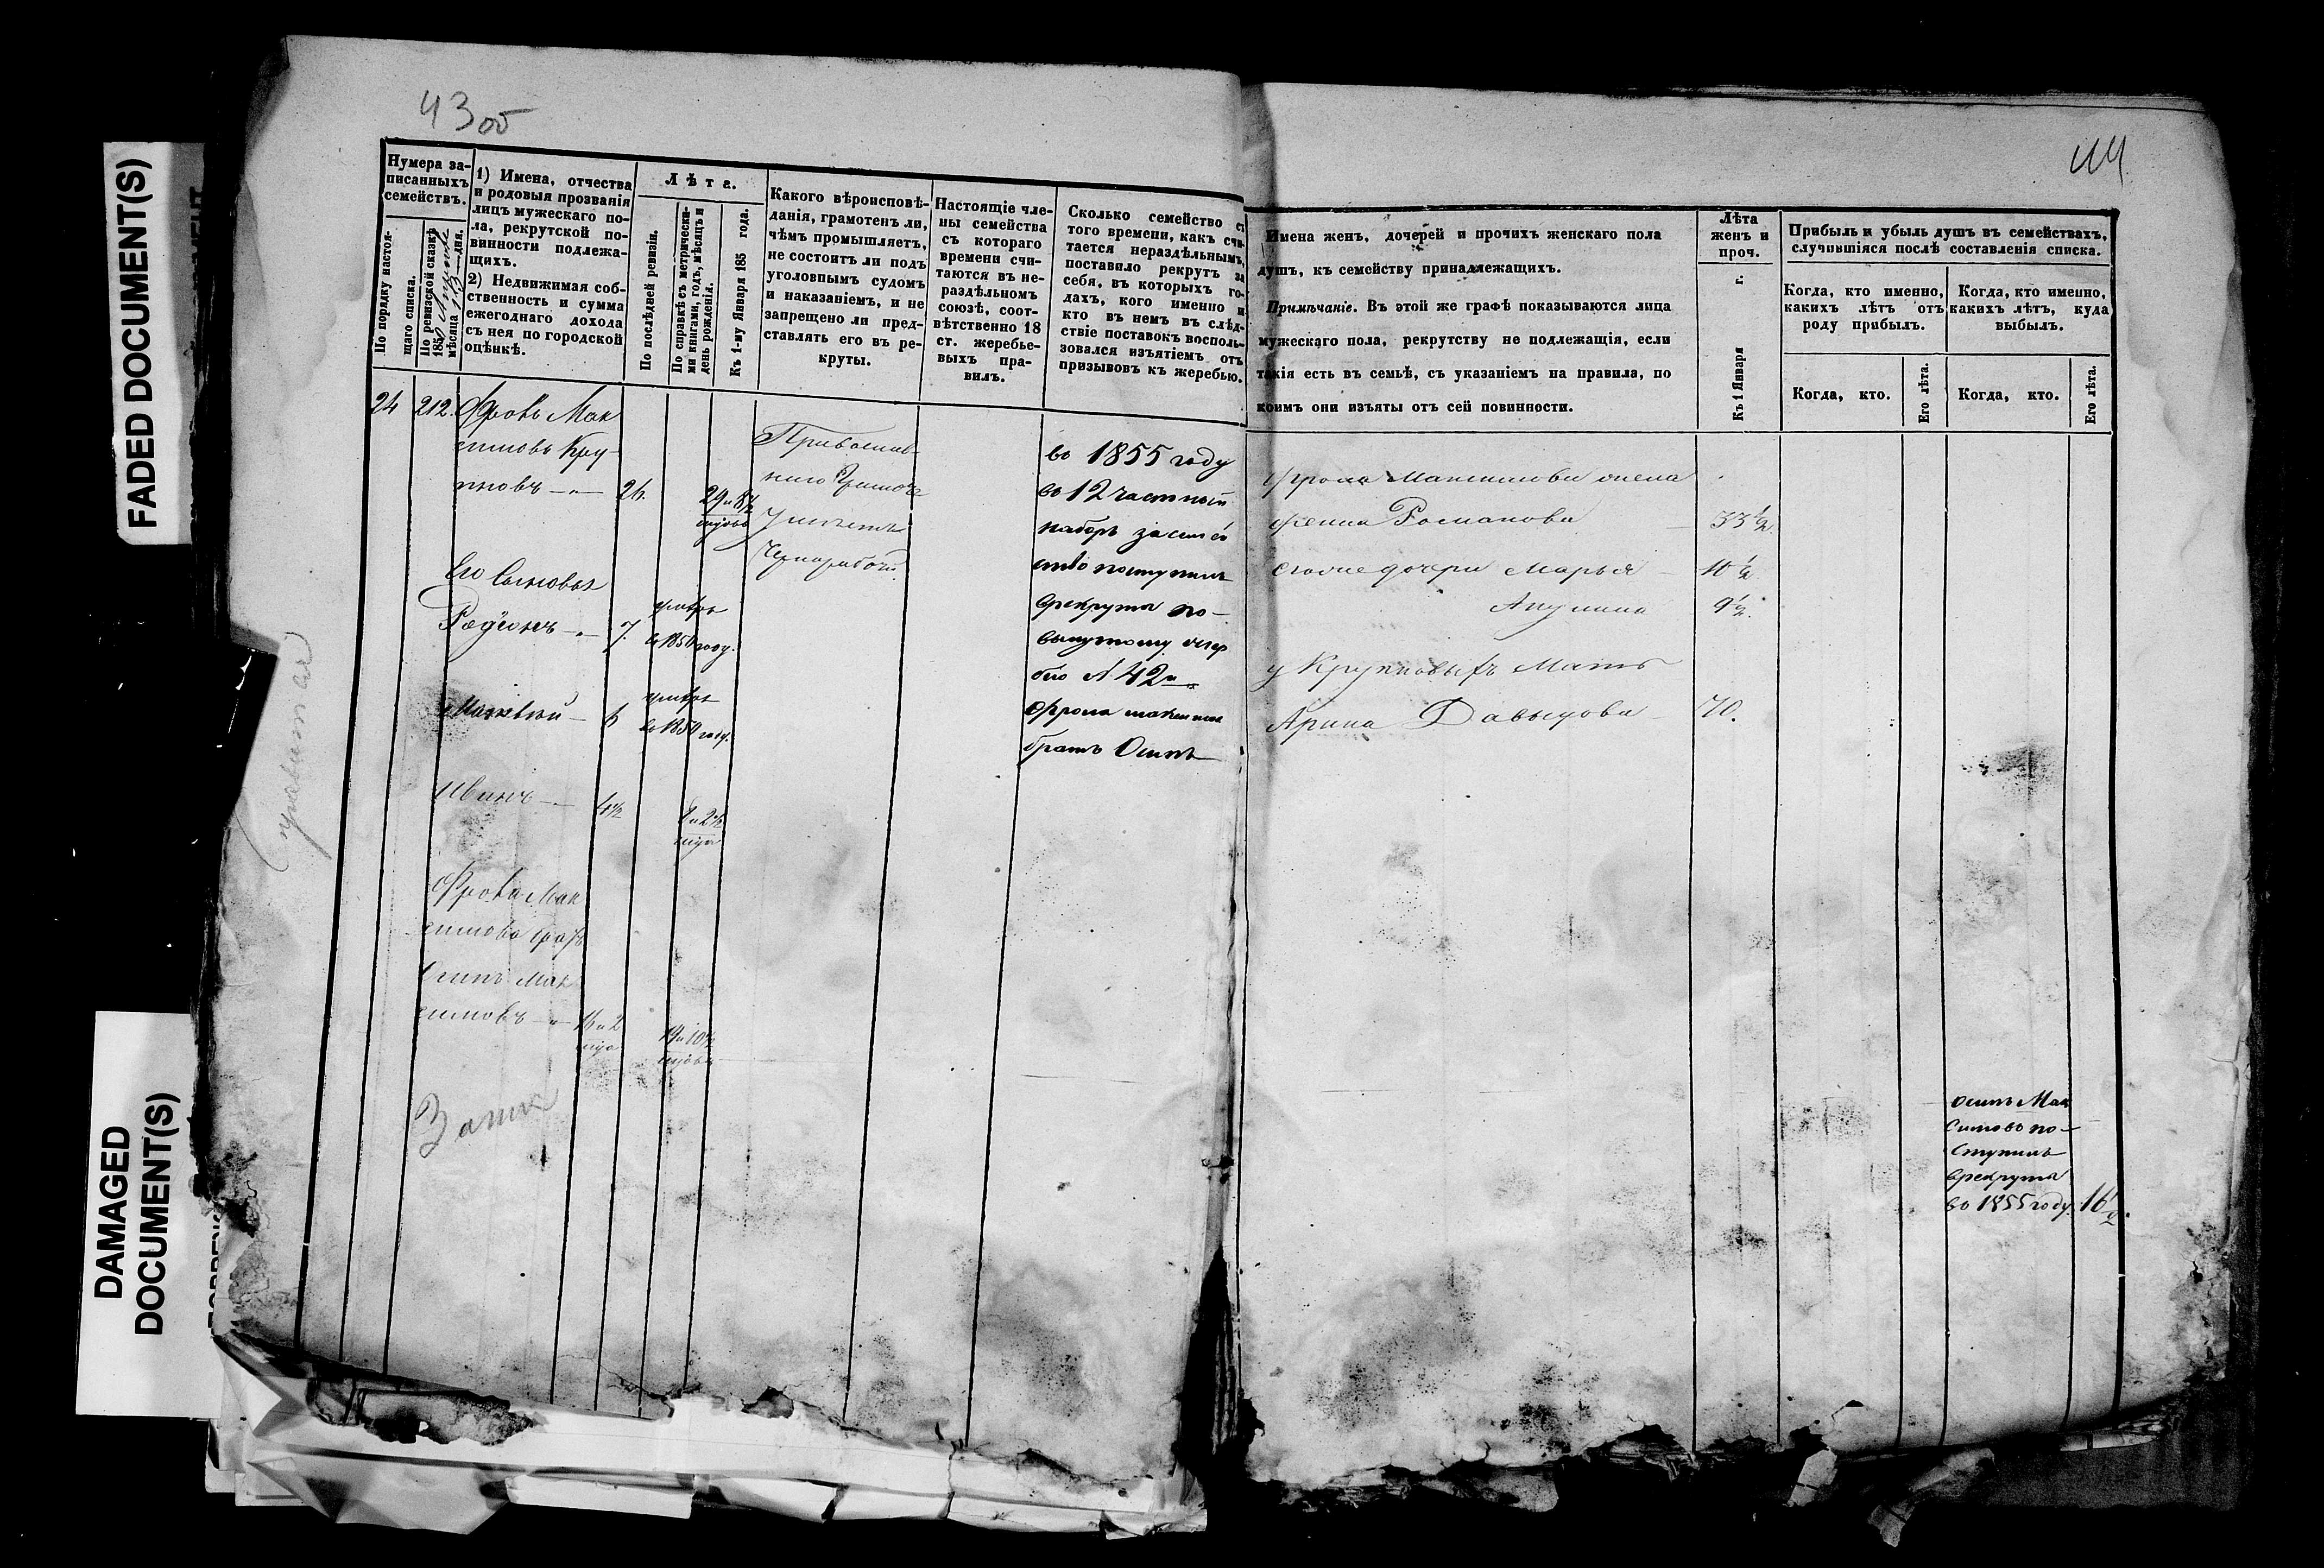 FADED DOCUMENT(S)
DAMAGED
DOCUMENT(S)
43об
44
Нумера за-
писанныхъ
семействъ.
По порядку настоя-
щаго списка.
По ревизской сказкѣ
185
мѣсяца 13 дня.
1) Имена, отчества
и родовыя прозванія
лицъ мужескаго по-
ла, рекрутской по-
винности подлежа-
щихъ.
2) Недвижимая соб-
ственность и сумма
ежегоднаго дохода
съ нея по городской
оцѣнкѣ.
Лѣта.
По послѣдней ревизіи.
По справкѣ съ метрически-
ми книгами, годъ, мѣсяцъ и
день рожденія.
Къ 1-му Января 185 года.
Какого вѣроисповѣ-
данія, грамотенъ ли,
чѣмъ промышляетъ,
не состоитъ ли подъ
уголовнымъ судомъ
и наказаніемъ, и не
запрещено ли пред-
ставлять его въ ре-
круты.
Настоящіе чле-
ны семейства
съ котораго
времени счи-
таются въ не-
раздѣльномъ
союзѣ, соот-
вѣтственно 18
ст. жеребье-
выхъ пра-
вилъ.
Сколько семейство съ
того времени, какъ счи-
тается нераздѣльнымъ,
поставило рекрутъ за
себя, въ которыхъ го-
дахъ, кого именно и
кто въ немъ въ слѣд-
ствіе поставокъ восполь-
зовался изъятіемъ отъ
призывовъ къ жеребью.
Имена женъ, дочерей и прочихъ женскаго пола
душъ, къ семейству принадлежащихъ.
Примѣчаніе. Въ этой же графѣ показываются лица
мужескаго пола, рекрутству не подлежащія, если
такія есть въ семьѣ, съ указаніемъ на правила, по
коимъ они изъяты отъ сей повинности.
Лѣта
женъ и
проч.
Къ 1 Января г.
Прибыль и убыль душъ въ семействахъ,
случившіяся послѣ составленія списка.
Когда, кто именно,
какихъ лѣтъ отъ
роду прибылъ.
Когда, кто именно,
какихъ лѣтъ, куда
выбылъ.
Когда, кто.
Его лѣта.
Когда, кто.
Его лѣта.
24 212. Фролъ Мак
симовъ Кру-
пновъ 26
29 и 8½
Его Сыновья
Радионъ 7.
въ 1850 году.
Матвѣй 6
въ 1850 году.
Иванъ 4½
Фрола Мак
симова братъ
Осипъ Мак
симовъ
во 1855 году
въ 12 частный
наборъ
поступилъ
врекруты по
вынутому жере
бію № 42й
Фрола максимов
братъ Осипъ
Фрола Максимова жена
Романова 33½
Марья 10½
Акулина 9½
у Крупновыхъ Мать
Арина Давыдова 70.
Осипъ Мак
симовъ по-
ступилъ
врекруты
во 1855 году. 16½.